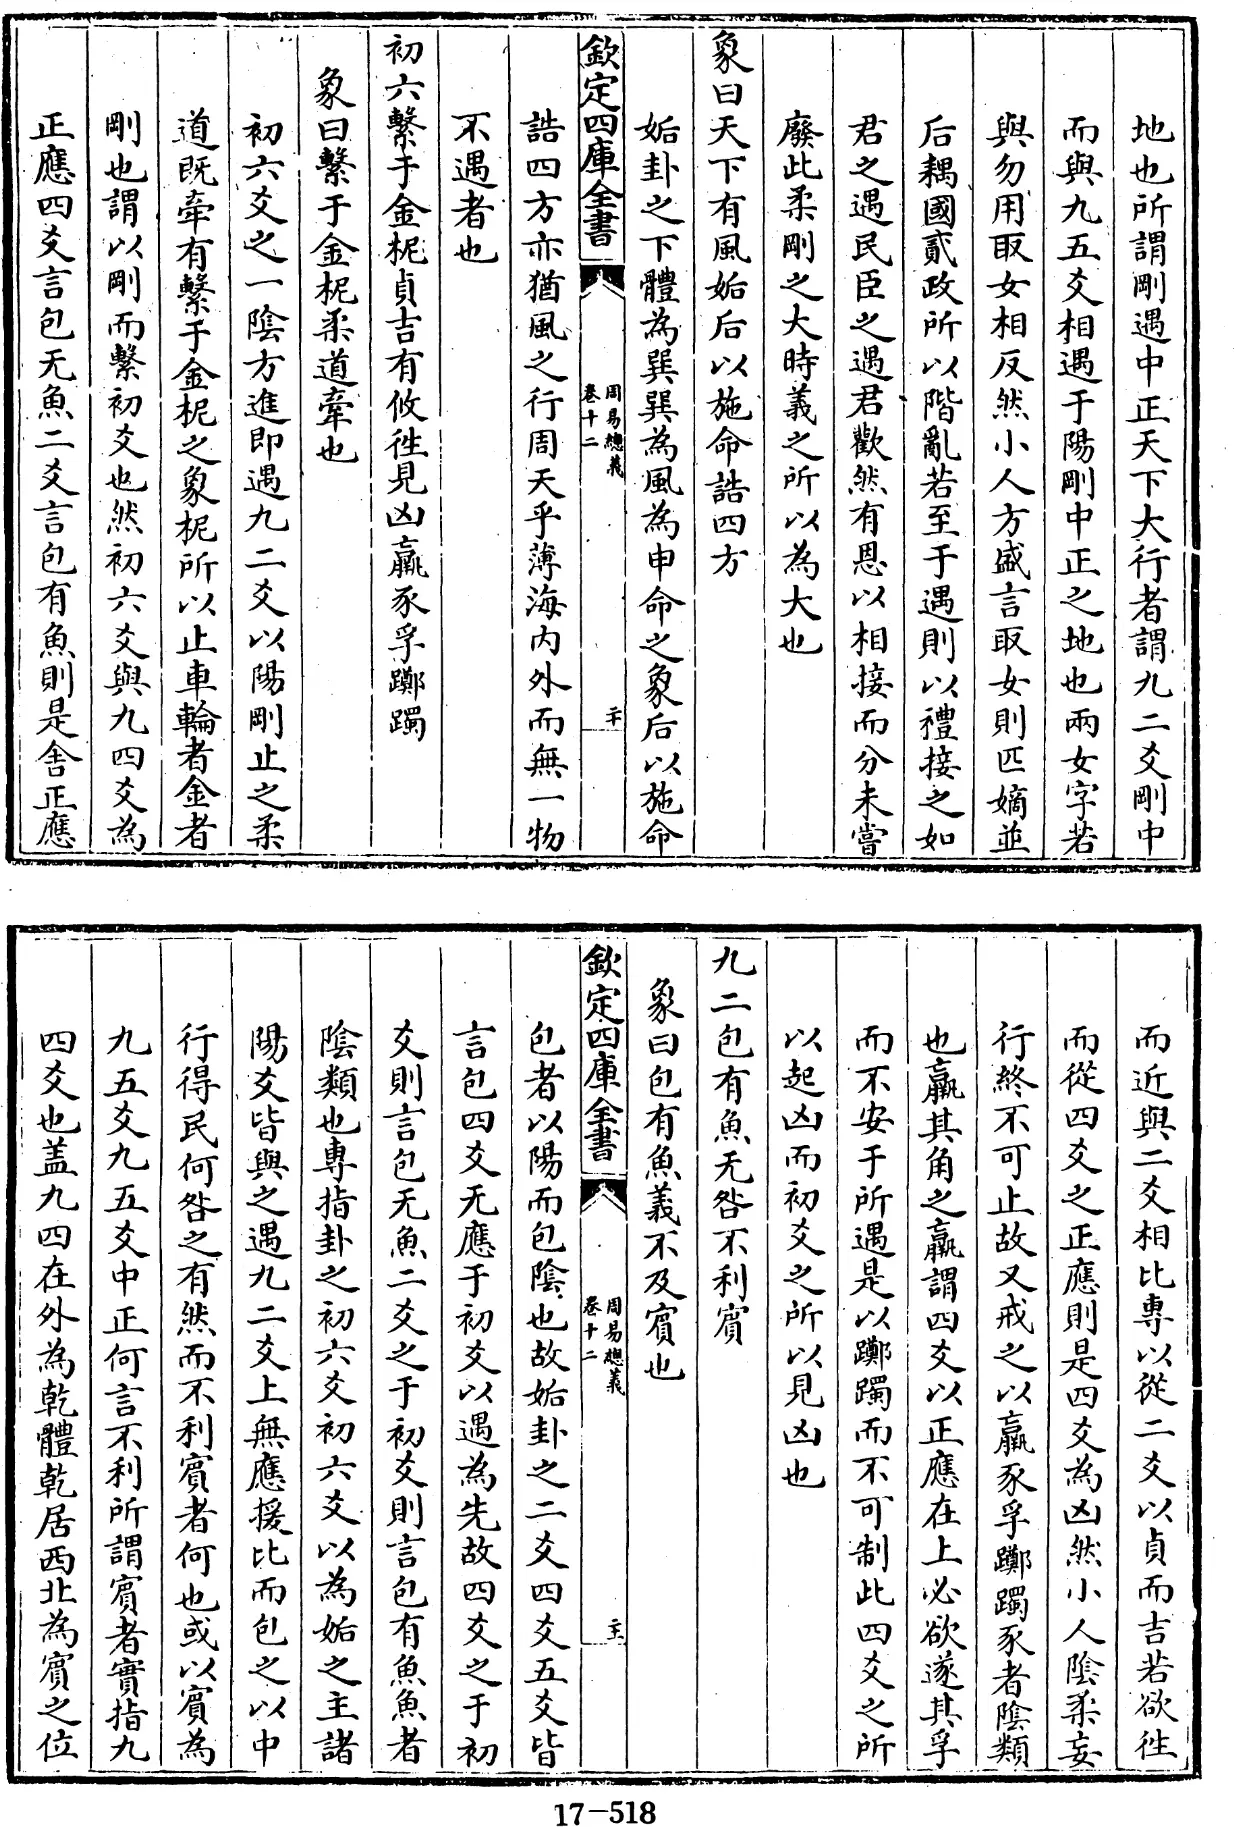 地也所謂剛遇中正天下大行者謂九二爻剛中
而與九五爻相遇于陽剛中正之地也兩女字若
與勿用取女相反然小人方盛言取女則匹嫡並
后耦國貳政所以階亂若至于遇則以禮接之如
君之遇民臣之遇君歡然有恩以相接而分未嘗
廢此柔剛之大時義之所以為大也
象曰天下有風姤后以施命誥四方
姤卦之下體為巽巽為風為申命之象后以施命
欽定四庫全書
周易總義
卷十二
二十
誥四方亦猶風之行周天乎薄海内外而無一物
不遇者也
初六繫于金柅貞吉有攸徃見凶羸豕孚躑躅
象曰繫于金柅柔道牽也
初六爻之一陰方進即遇九二爻以陽剛止之柔
道既牽有繫于金柅之象柅所以止車輪者金者
剛也謂以剛而繫初爻也然初六爻與九四爻為
正應四爻言包无魚二爻言包有魚則是舍正應
而近與二爻相比專以從二爻以貞而吉若欲徃
而從四爻之正應則是四爻為凶然小人陰柔妄
行終不可止故又戒之以羸豕孚躑躅豕者陰類
也羸其角之羸謂四爻以正應在上必欲遂其孚
而不安于所遇是以躑躅而不可制此四爻之所
以起凶而初爻之所以見凶也
九二包有魚无咎不利賓
象曰包有魚義不及賓也
欽定四庫全書
周易總義
卷十二
主
包者以陽而包陰也故姤卦之二爻四爻五爻皆
言包四爻无應于初爻以遇為先故四爻之于初
爻則言包无魚二爻之于初爻則言包有魚魚者
陰類也專指卦之初六爻初六爻以為姤之主諸
陽爻皆與之遇九二爻上無應援比而包之以中
行得民何咎之有然而不利賓者何也或以賓為
九五爻九五爻中正何言不利所謂賓者實指九
四爻也盖九四在外為乾體乾居西北為賓之位
17-518